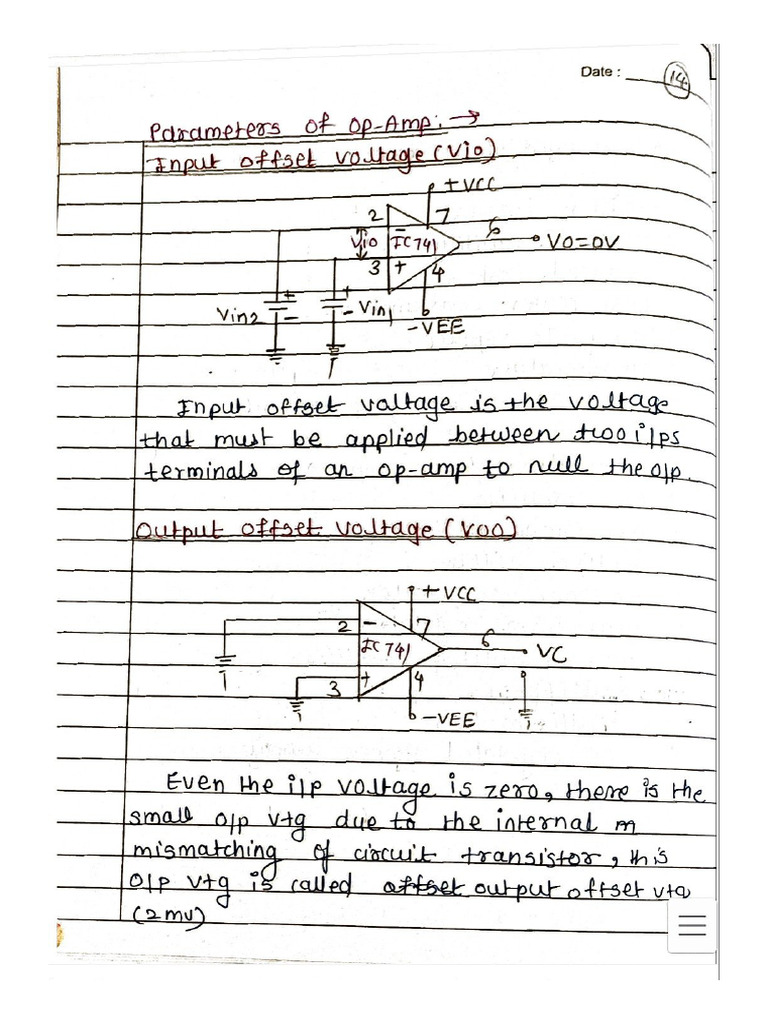 Date :
14
Parameters of Op-Amp: →
Input offset voltage (Vio)
+VCC
2
7
6
Vio
-
IC 741
Vo=0V
3
+
4
+
+
Vin2
-
-
Vin1
-VEE
Input offset voltage is the voltage
that must be applied between two i/ps
terminals of an op-amp to null the o/p.
Output offset voltage (Voo)
+VCC
2
-
7
6
IC 741
VC
+
3
4
-VEE
Even the i/p voltage is zero, there is the
small o/p vtg due to the internal m
mismatching of circuit transistor, this
o/p vtg is called offset output offset vtg
(2mv)